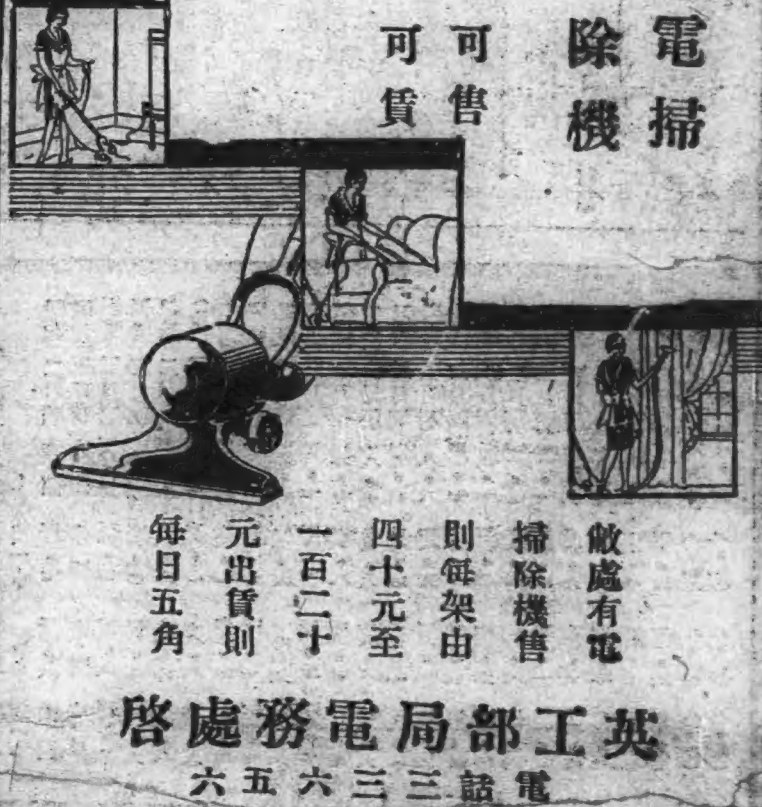 電掃
除機
可售
可賃
敝處有電
掃除機售
則每架由
四十元至
一百二十
元出賃則
每日五角
英工部局電務處啓
電話三三六五六